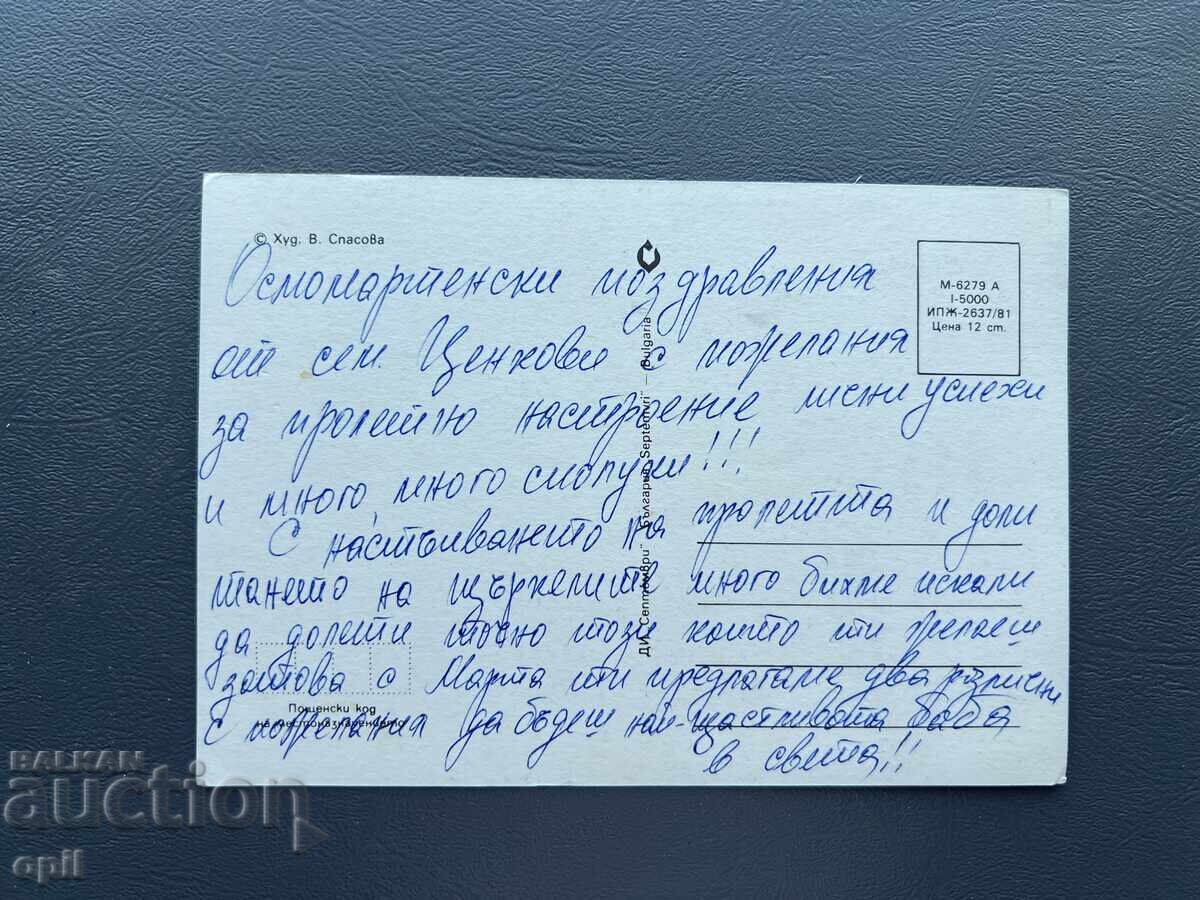 © Худ. В. Спасова
М-6279 А
I-5000
ИПЖ-2637/81
Цена 12 ст.
Осмомартенски поздравления
от сем. Ценкови с пожелания
за пролетно настроение лични успехи
и много, много сполуки!!!
С настъпването на пролетта и доли
тането на щъркелите много бихме искали
да долети точно този който ти желаеш
затова с Марта ти предлагаме два различни
с пожелания да бъдеш най-щастливата баба
в света!!
ДИ „Септември“ България „Septemvri“ — Bulgaria
Пощенски код
на местоназначението
BALKAN
auction
opil